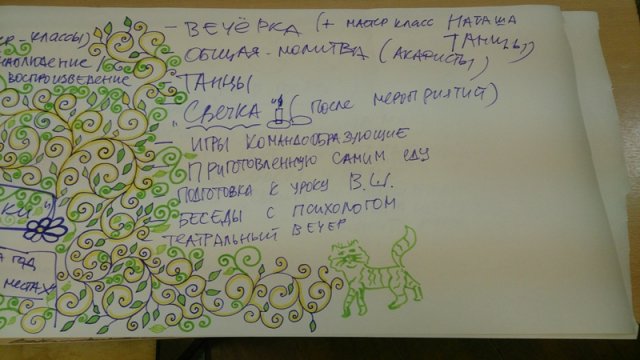 р-классы)
наблюдение/
воспроизведение
- ВЕЧЁРКА (+ мастер класс НАТАША ТАНЦЫ)
- ОБЩАЯ-МОЛИТВА (АКАФИСТЫ)
- ТАНЦЫ
"СВЕЧКА" (после мероприятий)
- ИГРЫ КОМАНДООБРАЗУЮЩИЕ
ПРИГОТОВЛЕННУЮ САМИМ ЕДУ
ПОДГОТОВКА К УРОКУ В.Ш.
- БЕСЕДЫ С ПСИХОЛОГОМ
- ТЕАТРАЛЬНЫЙ ВЕЧЕР
КИ"
ГОД
МЕСТАХ